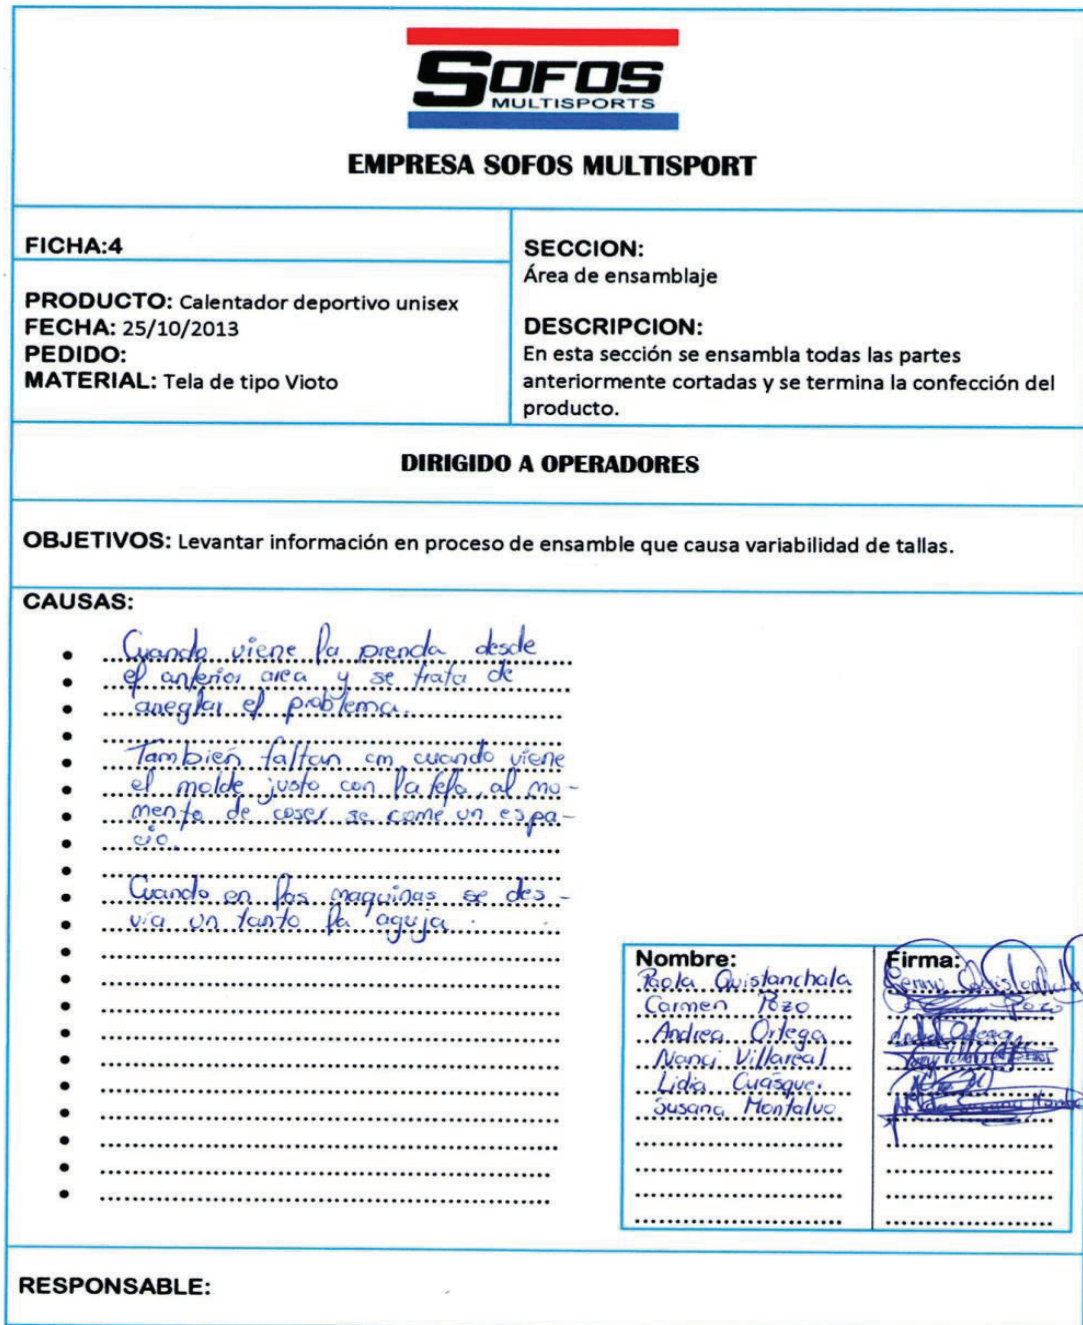 SOFOS
MULTISPORTS
EMPRESA SOFOS MULTISPORT
FICHA:4
PRODUCTO: Calentador deportivo unisex
FECHA: 25/10/2013
PEDIDO:
MATERIAL: Tela de tipo Vioto
SECCION:
Área de ensamblaje
DESCRIPCION:
En esta sección se ensambla todas las partes
anteriormente cortadas y se termina la confección del
producto.
DIRIGIDO A OPERADORES
OBJETIVOS: Levantar información en proceso de ensamble que causa variabilidad de tallas.
CAUSAS:
Cuando viene la prenda desde
el anterior area y se trata de
arreglar el problema.
También faltan cm cuando viene
el molde justo con la tela, al mo-
mento de coser se come un espa-
cio.
Cuando en las maquinas se des-
vía un tanto la aguja.
Nombre:
Paola Quistanchala
Carmen Pozo
Andrea Ortega
Nanci Villareal
Lidia Cuásque.
Susana Montalvo
Firma:
Pozo
RESPONSABLE: